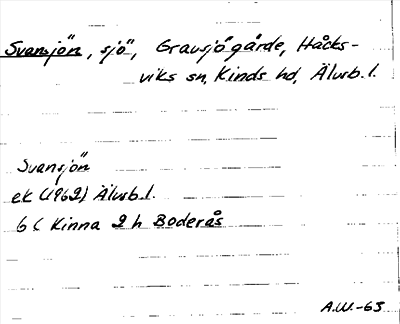 Svansjön, sjö, Gravsjögärde, Håcks-
viks sn, Kinds hd, Älvsb. l.
Svansjön
ek (1962) Älvsb. l.
6 C Kinna 2 h Boderås
A.W.-63